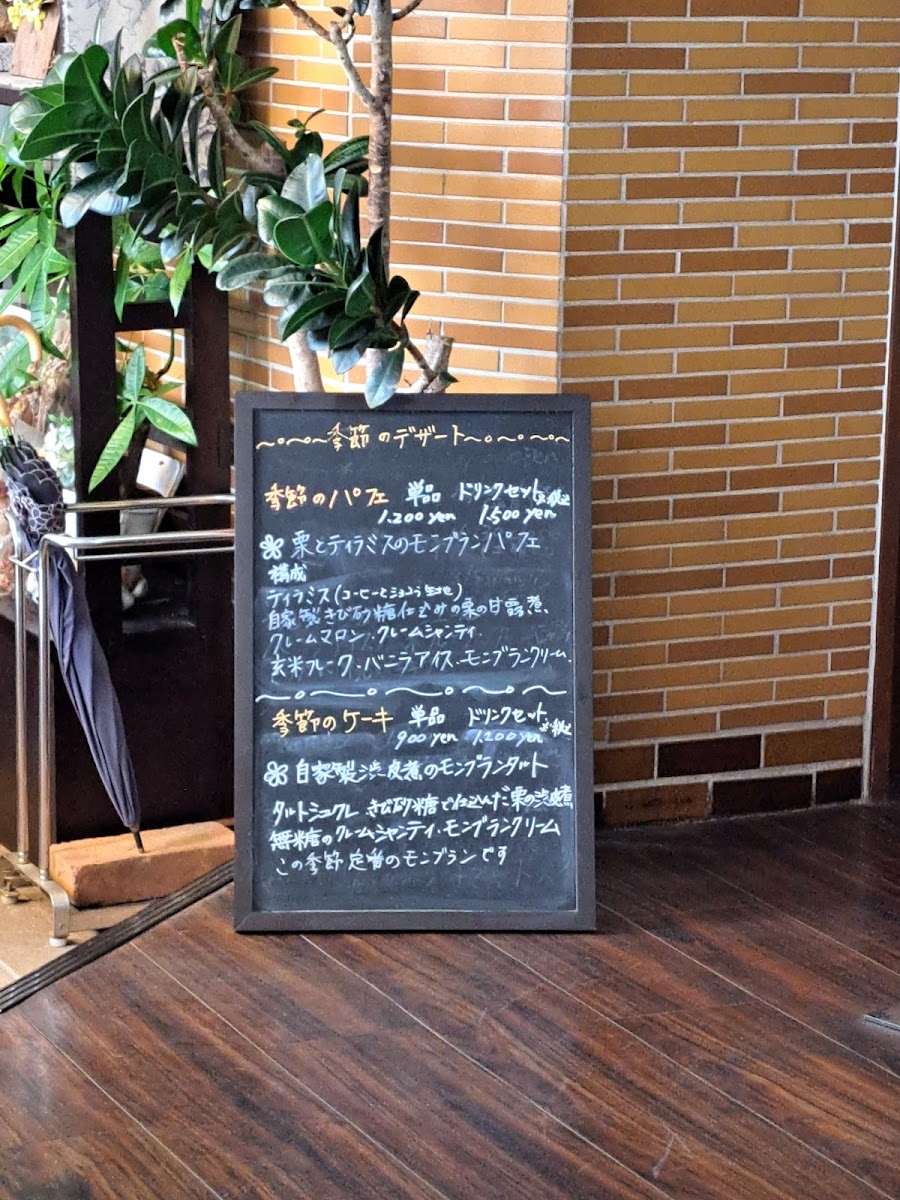 〜〜〜季節のデザート〜〜〜
季節のパフェ 単品 ドリンクセット 税込
1.200 yen 1.500 yen
栗とティラミスのモンブランパフェ
構成
ティラミス(コーヒーとショコラ生地)
自家製きび砂糖仕込みの栗の甘露煮、
クレームマロン、クレームシャンティ、
玄米フレーク、バニラアイス、モンブランクリーム、
季節のケーキ 単品 ドリンクセット 税込
900 yen 1.200 yen
自家製渋皮煮のモンブランタルト
タルトシュクレ きび砂糖で仕込んだ栗の渋皮煮
無糖のクレームシャンティ、モンブランクリーム
この季節定番のモンブランです